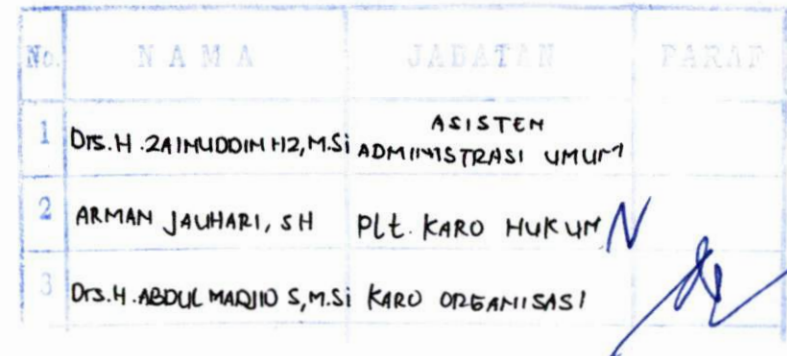 No. NAMA JABATAN PARAF
1 Drs. H. ZAINUDDIN HZ, M.Si ASISTEN ADMINISTRASI UMUM
2 ARMAN JAUHARI, SH Plt. KARO HUKUM
3 Drs. H. ABDUL MADJID S, M.Si KARO ORGANISASI